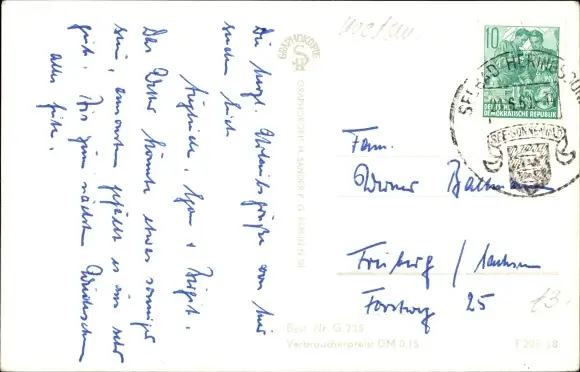 Die herzl. Urlaubsgrüße von hier
senden Euch
Ingelinde, Egon + Birgit.
Das Wetter könnte etwas sonniger
sein, ansonsten gefällt es uns sehr
gut. Bis zum nächsten Wiedersehen
alles Gute.
GRAPHOKOPIE
GRAPHOKOPIE H. SANDER K.G. BERLIN N 38
10
DEUTSCHE
DEMOKRATISCHE REPUBLIK
SEEBAD HERINGSDORF
Fam.
Werner Ballmann
Freiberg / Sachsen
Forstweg 25
Best. Nr. G 235
Verbraucherpreis: DM 0,15
F 209 58